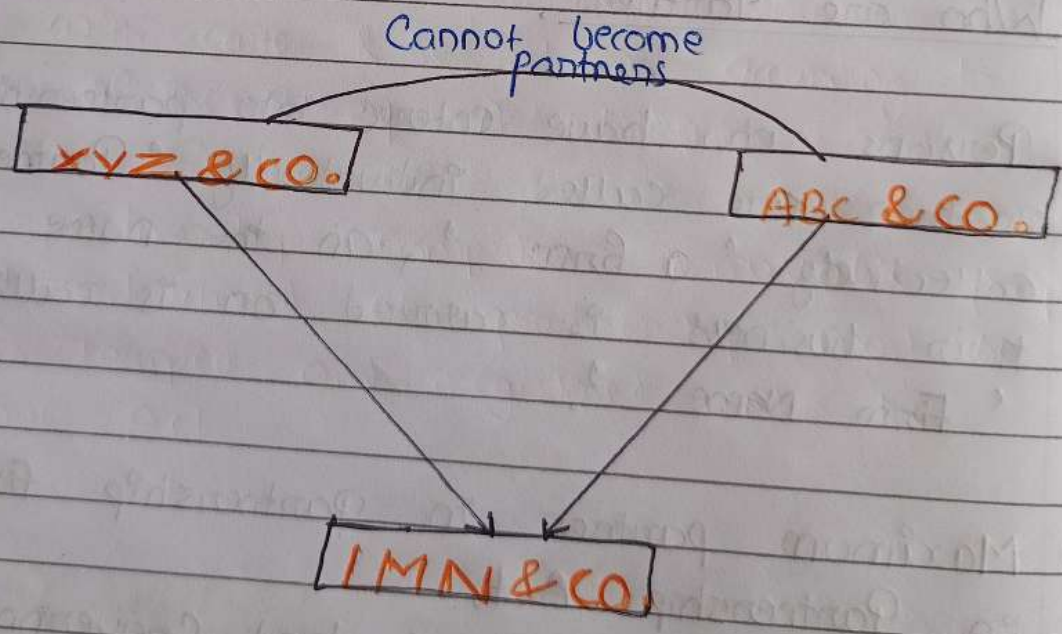 Cannot become
partners
XYZ & CO.
ABC & CO.
IMN & CO.